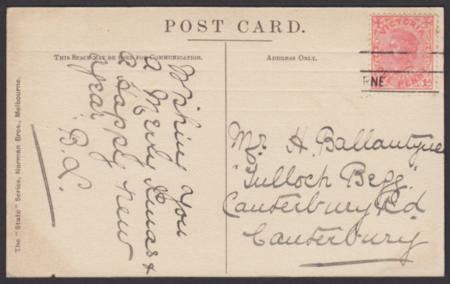 POST CARD.
THIS SPACE MAY BE USED FOR COMMUNICATION.
ADDRESS ONLY.
Wishing you
a Merry Xmas &
a Happy New
Year
B.L.
Mr. H. Ballantyne
"Tulloch Begg"
Canterbury Rd
Canterbury
VICTORIA
ONE PENNY
RNE
The "State" Series, Norman Bros., Melbourne.